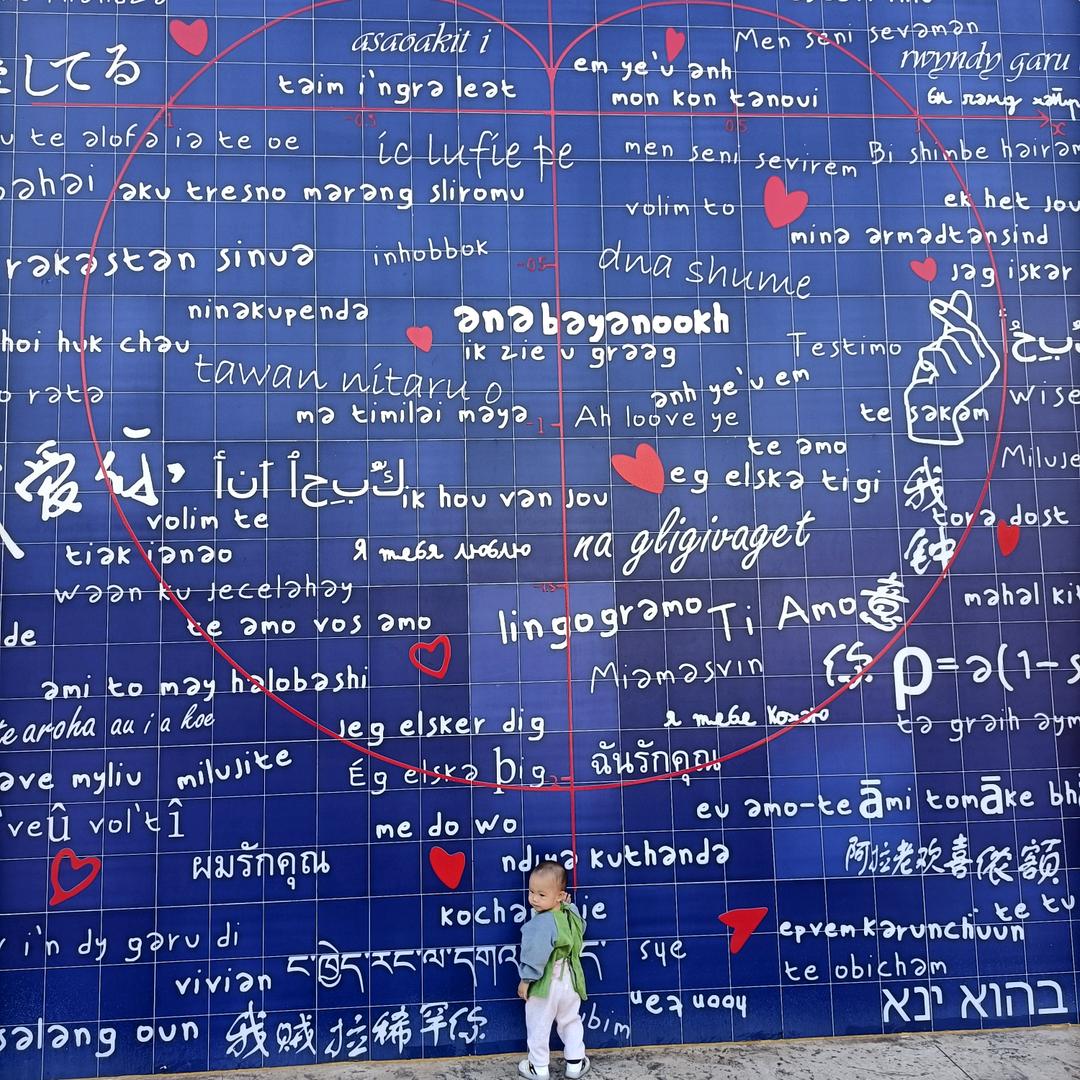 してる
asaoakit i
Men seni sevaman
rwyndy garu
taim i'ngra leat
em ye'u anh
mon kon tanoui
-1
-0.5
0.5
1
x
u te alofa ia te oe
ic lufie þe
men seni sevirem
Bi shinbe hairam
bahai
aku tresno marang sliromu
volim to
ek het jou
mina armadtansind
rakastan sinua
inhobbok
-0.5
dna shume
jag iskar
ninakupenda
anabayanookh
hoi huk chau
ik zie u graag
Testimo
tawan nitaru o
anh ye'u em
Wise
rata
ma timilai maya
-1
Ah loove ye
te sakam
te amo
爱你
ik hou van jou
eg elska tigi
Miluje
我
volim te
tora dost
tiak ianao
я тебя люблю
na gligivaget
钟
waan ku jecelahay
-1.5
mahal ki
de
te amo vos amo
lingogramo
Ti Amo
意
ami to may halobashi
Miamasvin
你
ρ=a(1-s
te aroha au i a koe
Jeg elsker dig
я тебе кохаю
ta graih aym
ave myliu
milujite
Ég elska þig
-2
ฉันรักคุณ
veû vol'tî
me do wo
eu amo-te
āmi tomāke bh
ผมรักคุณ
ndina kuthanda
阿拉老欢喜侬额
kocha
ie
i'n dy garu di
te tu
epvem karunchuun
vivian
sye
te obicham
בהוא ינא
salang oun
我贼拉稀罕你
bim